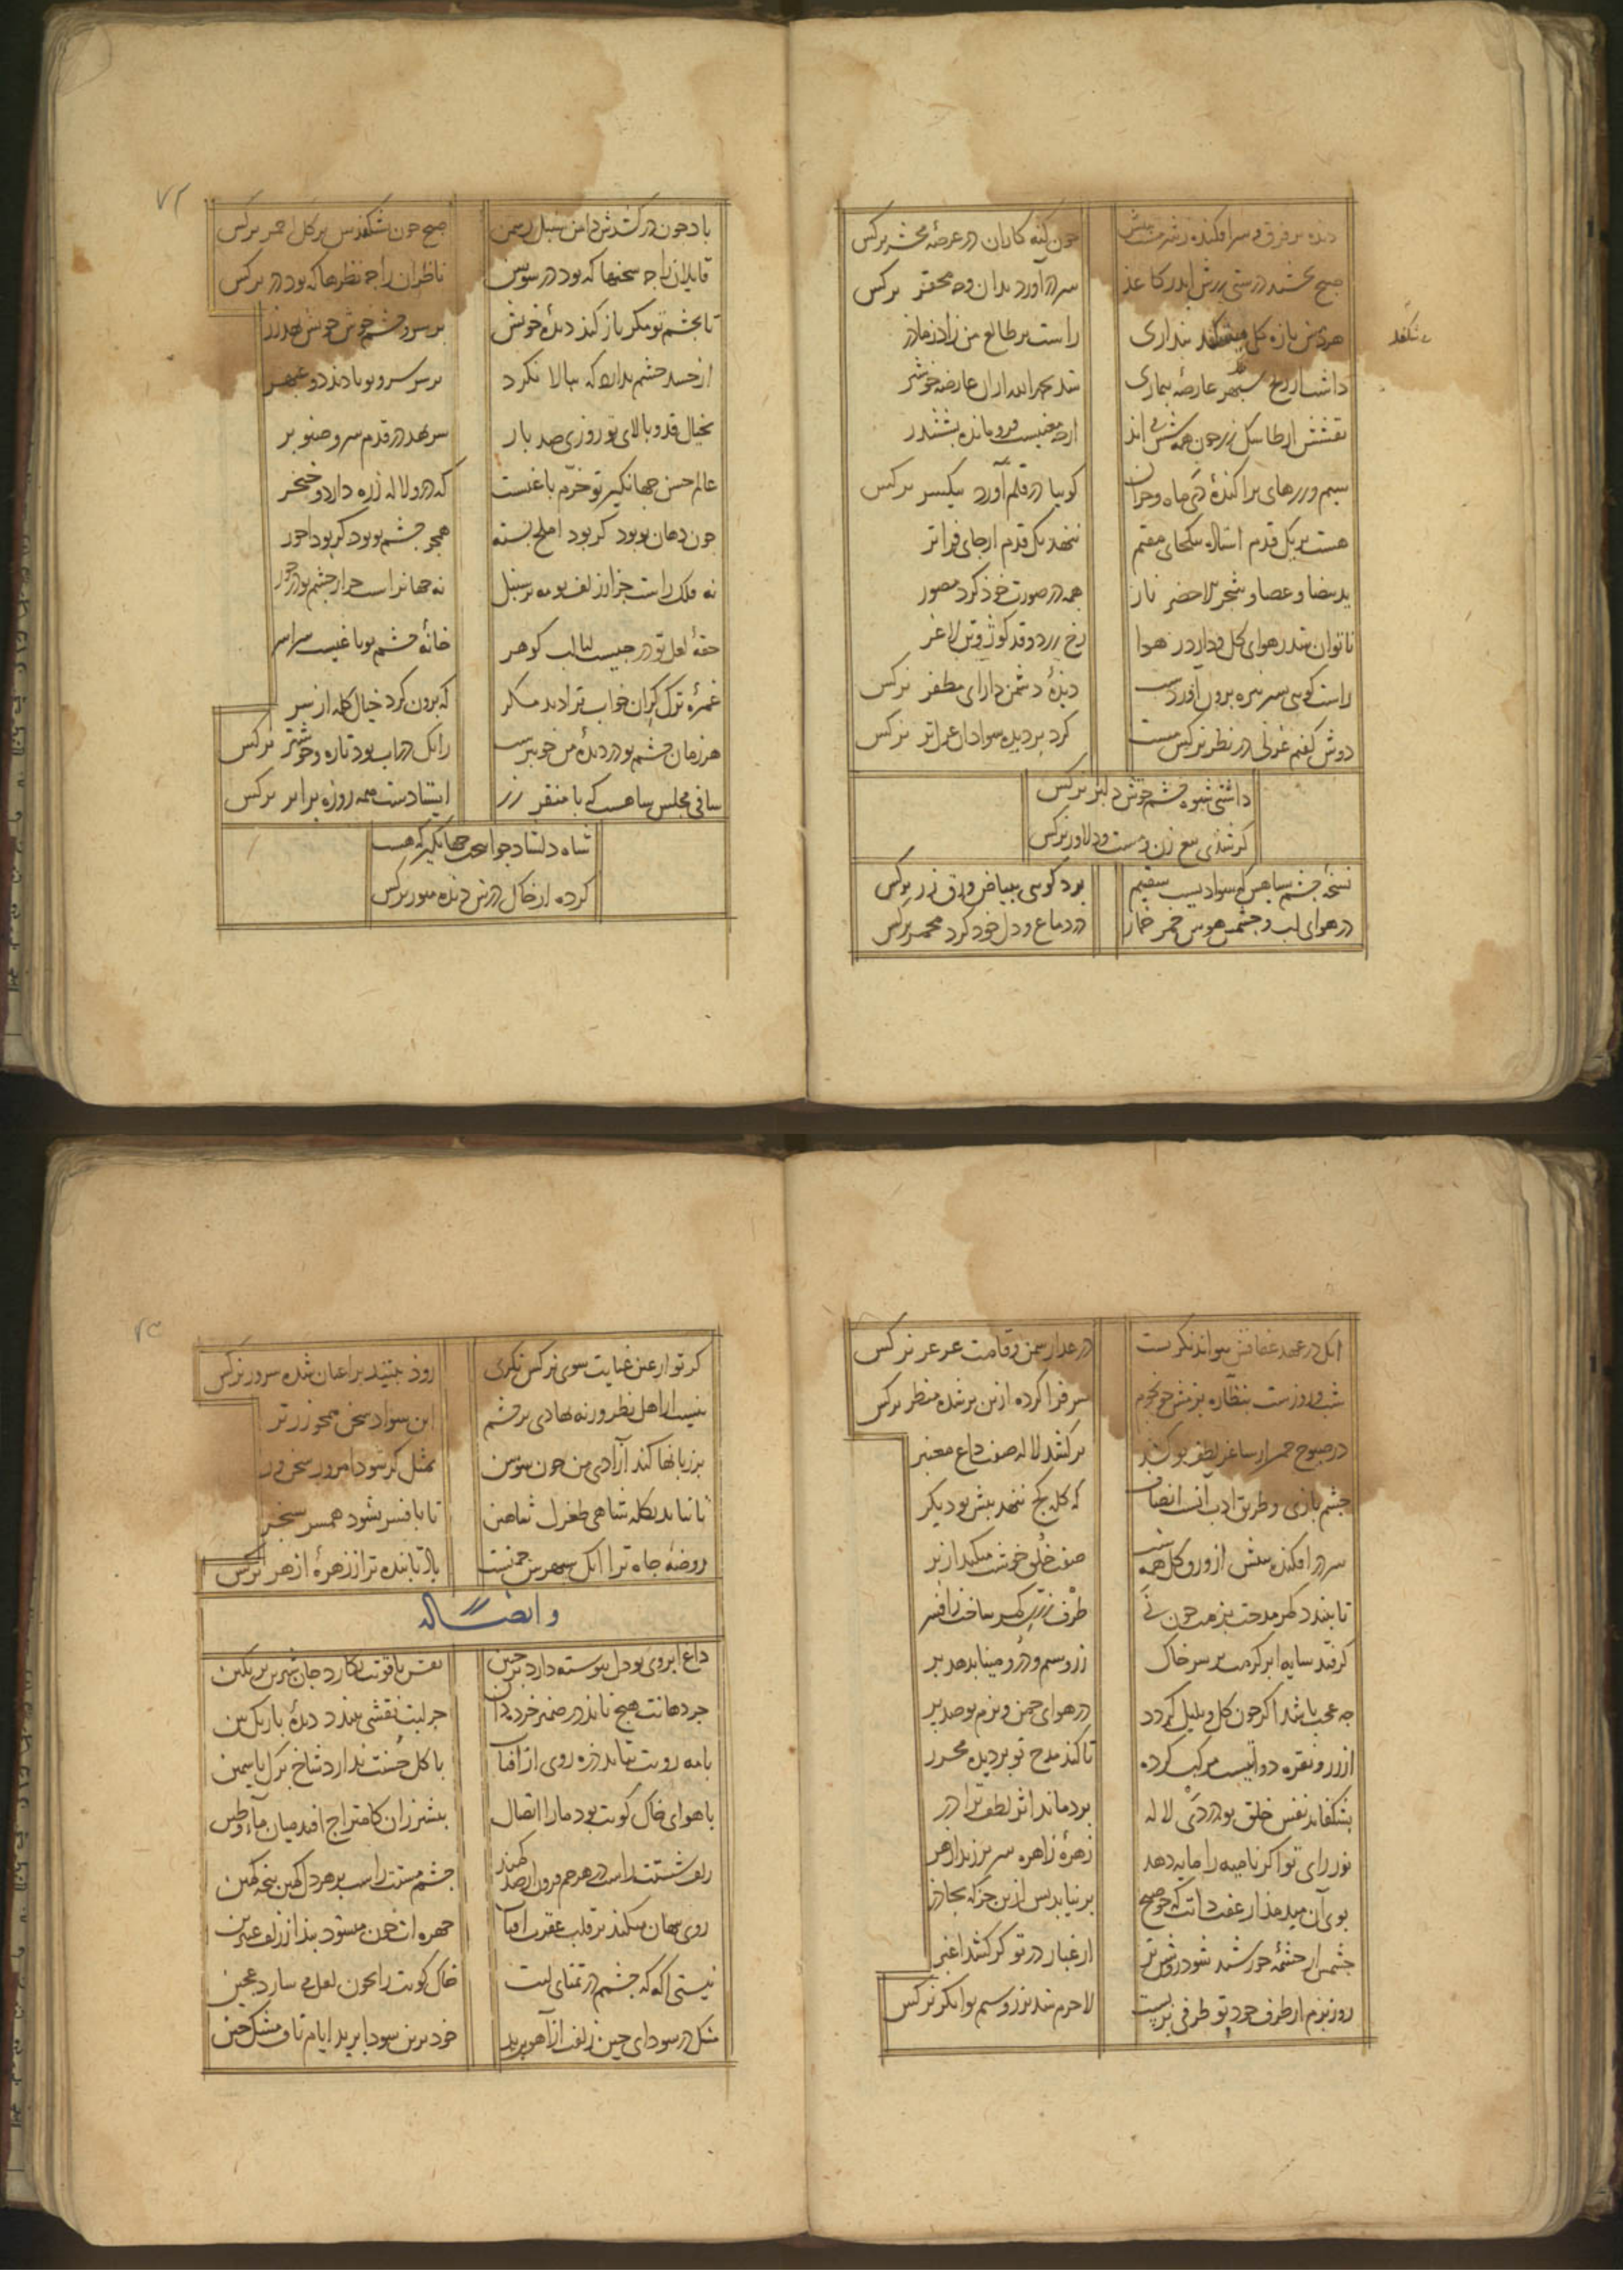 دیده بر فرق و سر افکنده ز شرمش
چون گنه کاران در عرصهٔ محشر نرکس
صبح
سر در آورد بدان وجه محقر نرکس
هر دمش تازه کل میشکفد بنداری
راست بر طالع من زاد ز مادر
بشکفد
داشت از
شد بحمد الله از آن عارضه خوشتر
نقشش از طاس
فرو مانده بششدر
سیم و زرهای براکندهٔ دی ماه و خزان
کوییا در قلم آورد بیکسر نرکس
هست بر یک قدم استاده بیکجای مقیم
ننهد یک قدم از جای فراتر
ید بیضا و عصا و شجر لاخضر نار
همه در صورت خود کرد مصور
ناتوان شد در هوای کل و دارد ز هوا
رخ زرد و قد کوژ و تن لاغر
راست کویی سر
دیدهٔ دشمن دارای مظفر نرکس
دوش کفتم غزلی در نظر نرکس مست
کرد بر دیده سواد آن غزل تر نرکس
داشتی شیوه چشم خوش دلبر نرکس
کر شدی تیغ زن و مست و دلاور نرکس
نسخهٔ چشم سیاهش که سوادیست سقیم
برد کویی ببیاض ورق زر نرکس
در هوای لب و چشمش هوس خمر خمار
در دماغ و دل خود کرد مخمر نرکس
باد چون در کشدش دامن سنبل ز سمن
صبح چون بشکفدش بر کل احمر نرکس
قایلان را چه سخنها که بود در سوسن
ناظران را چه نظرها که بود در نرکس
تا بچشم تو مکر باز کند دیدهٔ خویش
بر سر و چشم خوش خویش نهد زر
از حسد چشم نداری که ببالا نکرد
بر سر سرو تو بادند دو عبهر
بخیال قد و بالای تو روزی صد بار
سر نهد در قدم سرو و صنوبر
عالم حسن جهانکیر تو خرم باغیست
که درو لاله زره دارد و خنجر
چون دهان تو بود کر بود املح بسته
همچو چشم تو بود کر بود احور
نه فلک راست جز از زلف تو مه بر سنبل
نه جهان راست جز از چشم تو در خور
حقهٔ لعل تو درجیست لبالب کوهر
خانهٔ چشم تو باغیست سراسر
غمزهٔ ترک کران خواب ترا دید مکر
که برون کرد خیال کله از سر
هر زمان چشم تو در دیدهٔ من خوبترست
زانک در آب بود تازه و خوشتر نرکس
ساقی مجلس شاهست که با منقر زر
ایستادست همه روزه برابر نرکس
شاه دلشاد جوانبخت جهانکیر که هست
کرده از خاک درش دیده منور نرکس
آنک در عهد عفافش نتواند نکریست
در عذار سمن و قامت عرعر نرکس
شب و روزست بنظاره بزمش چو نجوم
سر فرا کرده ازین بر شده منظر نرکس
در صبوح
بر کشد لاله صفت داغ معنبر
چشم بازی و طریق ادب آنست انصاف
که کله کج ننهد پیش تو دیکر
سر در افکنده ببیش از ورق کل همه شب
صفت خلق خوشت میکند از بر
تا ببندد کمر مدحت بزمت چون نی
طرف زرین کمر ساخت ز افسر
کر فتد سایه ابر کرمت بر سر خاک
زر و سیم و در و مینا بدهد بر
چه عجب باشد اکر چون کل و بلبل کردد
در هوای چمن و بزم تو صد پر
از زر و نقره دواتیست مرکب کرده
تا کند مدح تو بر دیده محرر
بشکفاند نفس خلق تو در دی لاله
برد ماند اثر لطف ترا در
نور رای تو اکر نامیه را مایه دهد
زهرهٔ زاهره سر بر زند از هر
بوی آن میدمد از عفت ذاتت که چو صبح
بر نیاید پس ازین جز که بجادر
چشمش از چشمهٔ خورشید شود روشن تر
از غبار در تو کر کشد اغبر
روز بزم از طرف جود تو طرفی بر بست
لاجرم شد بزر و سیم توانکر نرکس
کر تو از عین عنایت سوی نرکس نکری
روز جنبید بر اعیان شده سرور نرکس
نیست از اهل نظر ورنه نهادی بر چشم
این سواد سخن همچو زر تر
بر زبانها کند آزادی من چون سوسن
بمثل کر شود امروز سخن ور
تا نیاید بکله شاهی طغرل شاهین
تا بافسر نشود همسر سنجر
روضهٔ جاه ترا آنک سپهرش چمنست
باد تابنده تر از زهرهٔ ازهر نرکس
و ایضا له
داغ ابروی تو دل پیوسته دارد بر جبین
نقش یاقوتت نکارد جان شیرین بر نکین
جز دهانت هیچ ناید در ضمیر خرده دان
جز لبت نقشی نبندد دیدهٔ باریک بین
با مه رویت نتابد ذره روی از آفتاب
با کل حسنت ندارد شاخ برک یاسمین
با هوای خاک کویت بود ما را اتصال
بیشتر زان کامتزاج افتد میان ماء و طین
زلف شستت راست در هر خم فزون از صد کمند
چشم مستت راست بر هر دل کمین پنجه کمین
روی پنهان میکند در قلب عقرب آفتاب
چهره ات چون میشود بیدا ز زلف عنبرین
نیستی آکه که چشمم در تمنای لبت
خاک کویت را بخون لعل می سازد عجین
مشک در سودای چین زلفت از آهو برید
خود برین سودا برید ایام ناف مشک چین